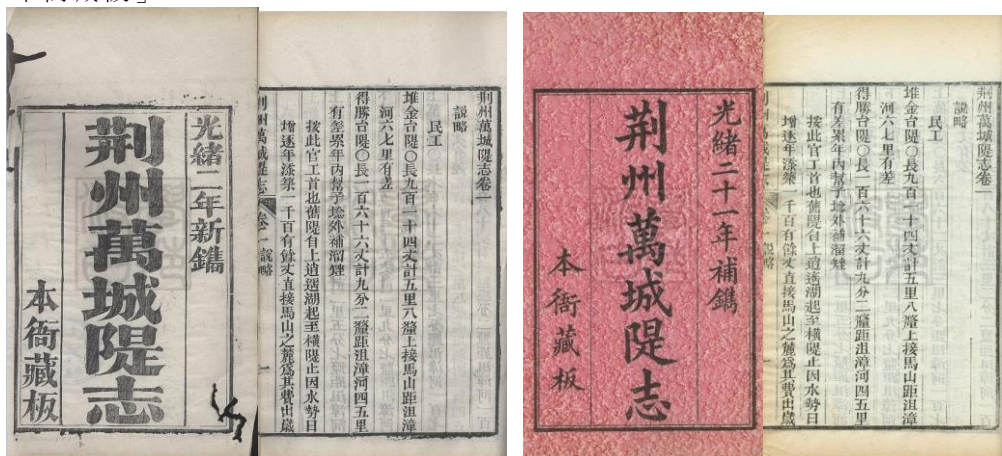 光緒二年新鐫
荆州萬城隄志
本衙藏板
荆州萬城隄志卷一
說略
民工
堆金台隄〇長九百一十四丈計五里八釐上接馬山距沮漳
河六七里有差
得勝台隄〇長一百六十六丈計九分二釐距沮漳河四五里
有差累年內幫子埝外補溜矬
按此官工首也舊隄自上逍遙湖起至橫隄止因水勢日
增逐年添築一千百有餘丈直接馬山之麓爲其費出歲
荆州萬城隄志 卷一 說略 一
光緒二十一年補鐫
荆州萬城隄志
本衙藏板
荆州萬城隄志卷一
說略
民工
堆金台隄〇長九百一十四丈計五里八釐上接馬山距沮漳
河六七里有差
得勝台隄〇長一百六十六丈計九分二釐距沮漳河四五里
有差累年內幫子埝外補溜矬
按此官工首也舊隄自上逍遙湖起至橫隄止因水勢日
增逐年添築一千百有餘丈直接馬山之麓爲其費出歲
荆州萬城隄志 說略 一